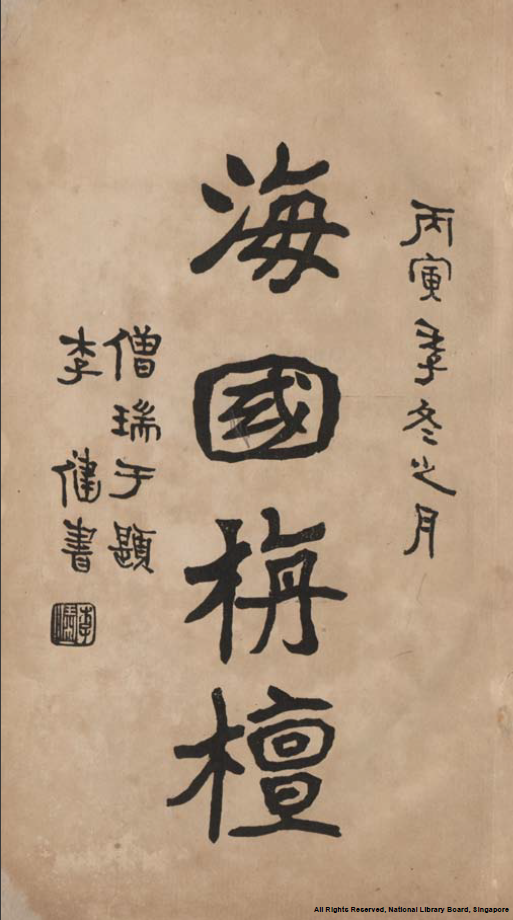 丙寅季冬之月
海國栴檀
僧瑞于題
李健書
All Rights Reserved, National Library Board, Singapore